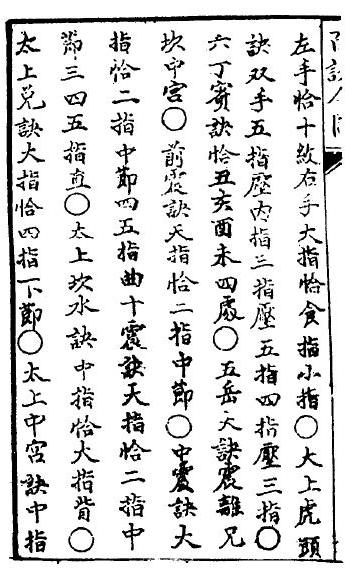 左手恰十紋右手大指恰食指小指〇大上虎頭
訣双手五指壓内指三指壓五指四指壓三指〇
六丁賓訣恰丑亥酉未四處〇五岳天訣震離兄
坎中宫〇前震訣天指恰二指中節〇中震訣大
指恰二指中節四五指曲十震訣天指恰二指中
節三四五指直〇太上坎水訣中指恰大指背〇
太上兌訣大指恰四指下節〇太上中宫訣中指